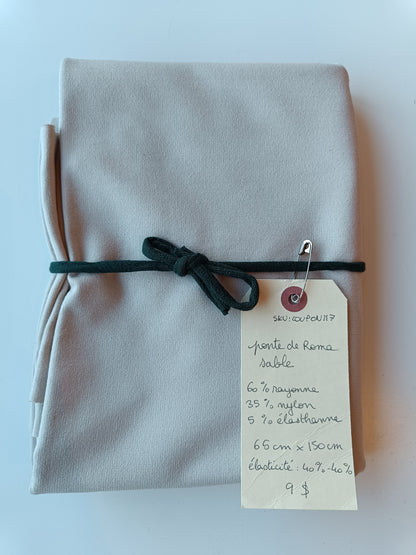 SKU: COUPON117
ponte de Roma
sable
60% rayonne
35% nylon
5% élasthanne
65cm x 150cm
élasticité: 40%-40%
9 $